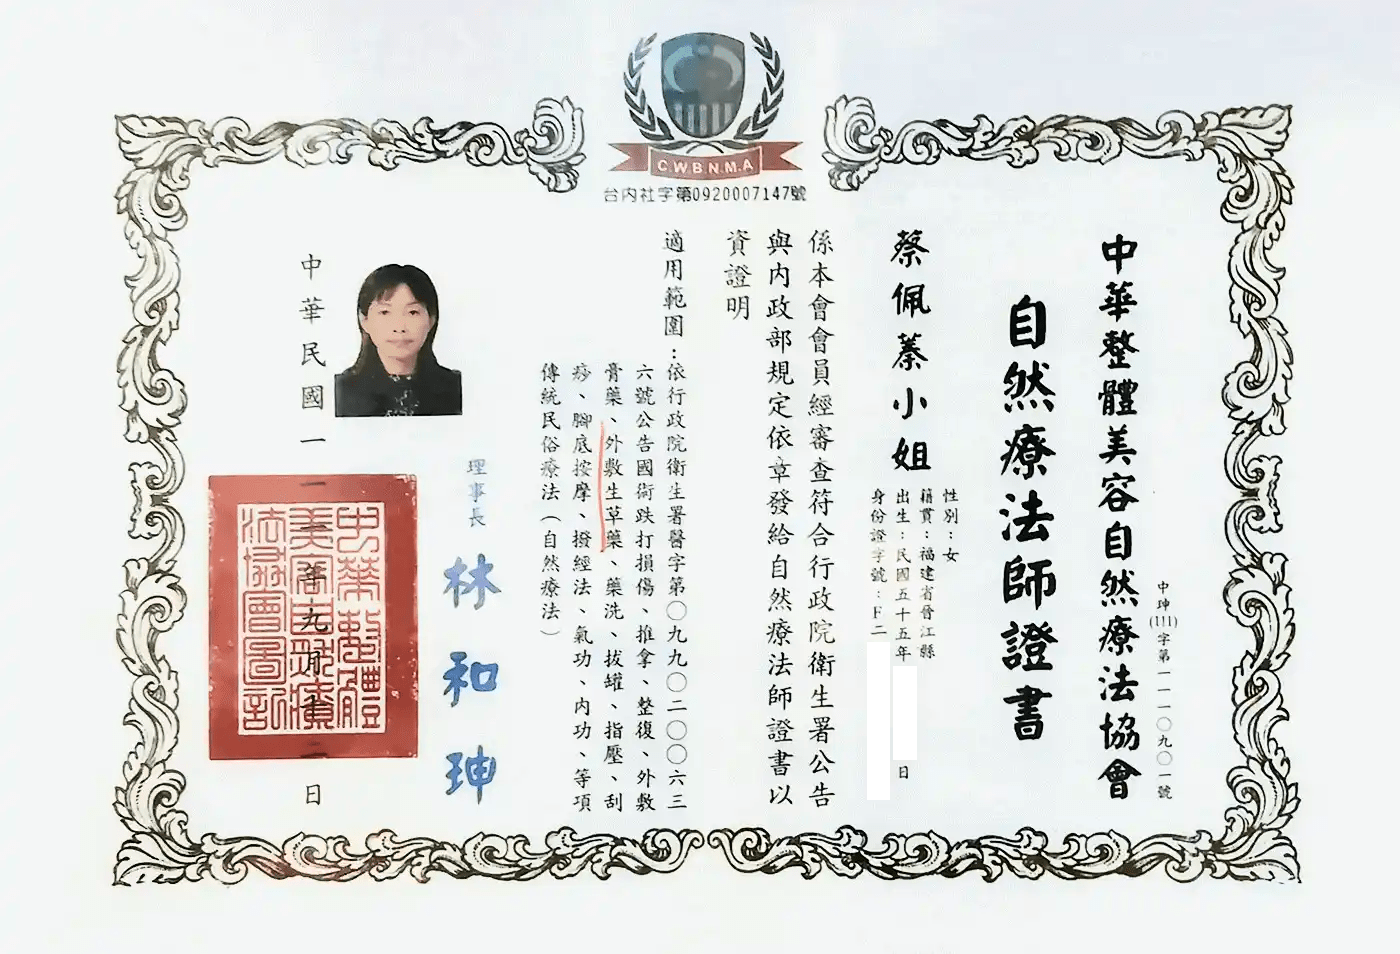 C.W.B.N.M.A
台內社字第0920007147號
中華整體美容自然療法協會
中珅(111)字第一一一〇九〇一號
自然療法師證書
蔡佩蓁小姐
性別:女
籍貫:福建省晉江縣
出生:民國五十五年
日
身份證字號:F二
係本會會員經審查符合行政院衛生署公告
與內政部規定依章發給自然療法師證書以
資證明
適用範圍:依行政院衛生署醫字第〇九九〇二〇〇六三
六號公告國術跌打損傷、推拿、整復、外敷
膏藥、外敷生草藥、藥洗、拔罐、指壓、刮
痧、腳底按摩、撥經法、氣功、內功、等項
傳統民俗療法(自然療法)
理事長 林和珅
中華民國一一一年九月十二日
中華整體
美容自然療
法協會圖記